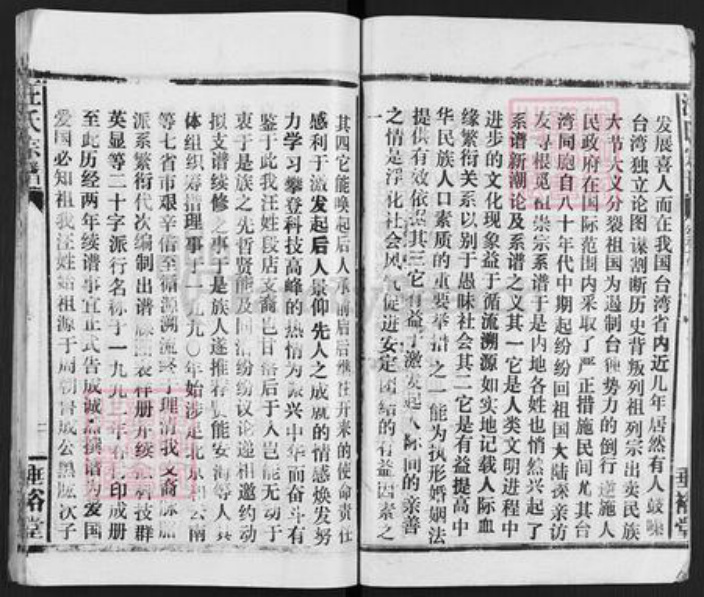 发展喜人而在我国台湾省内近几年居然有人鼓噪
台湾独立论图谋割断历史背叛列祖列宗出卖民族
大节大义分裂祖国为遏制台独势力的倒行逆施人
民政府在国际范围内采取了严正措施民间尤其台
湾同胞自八十年代中期起纷纷回祖国大陆探亲访
友寻根觅祖崇宗系谱于是内地各姓也悄然兴起了
系谱新潮论及系谱之义其一它是人类文明进程中
进步的文化现象益于循流溯源如实地记载人际血
缘繁衍关系以别于愚昧社会其二它是有益提高中
华民族人口素质的重要举措之一能为执形婚姻法
提供有效依据其三它有益于激发起人际间的亲善
之情是浮化社会风气促进安定团结的有益因素之
一
垂裕堂
其四它能唤起后人承前启后继往开来的使命责任
感利于激发起后人景仰先人之成就的情感焕发努
力学习攀登科技高峰的热情为振兴中华而奋斗有
鉴于此我汪姓段店支裔岂甘落后于人岂能无动于
衷于是族之先哲贤能及同治纷纷议论递相邀约动
拟支谱续修之事于是族人遂推存贤能安海等人具
体组织筹措理事于一九九〇年始涉足北京和云南
等七省市艰辛备至循源溯流终于理清我支裔脉胍
派系繁衍代次编制出谱 表样册并续 科技群
英显等二十字派行名称于一九九 年在 印成册
至此历经两年续谱事宜正式告成诚然撰谱为爱国
爱国必知祖我汪姓始祖源于周朝鲁成公黑肱次子
汪氏宗谱
二
垂裕堂